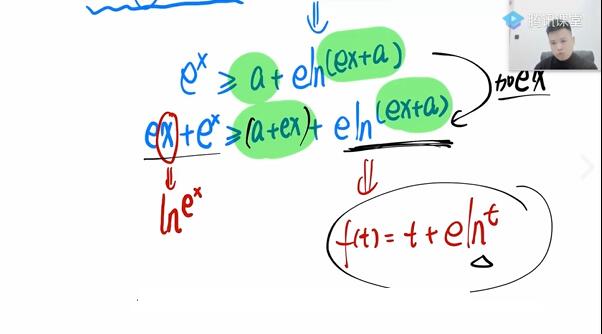 腾讯课堂
⇓
e^x ≥ a + eln(ex+a)
加ex
ex + e^x ≥ (a+ex) + eln(ex+a)
⇓ ⇓
ln e^x
f(t) = t + eln^t